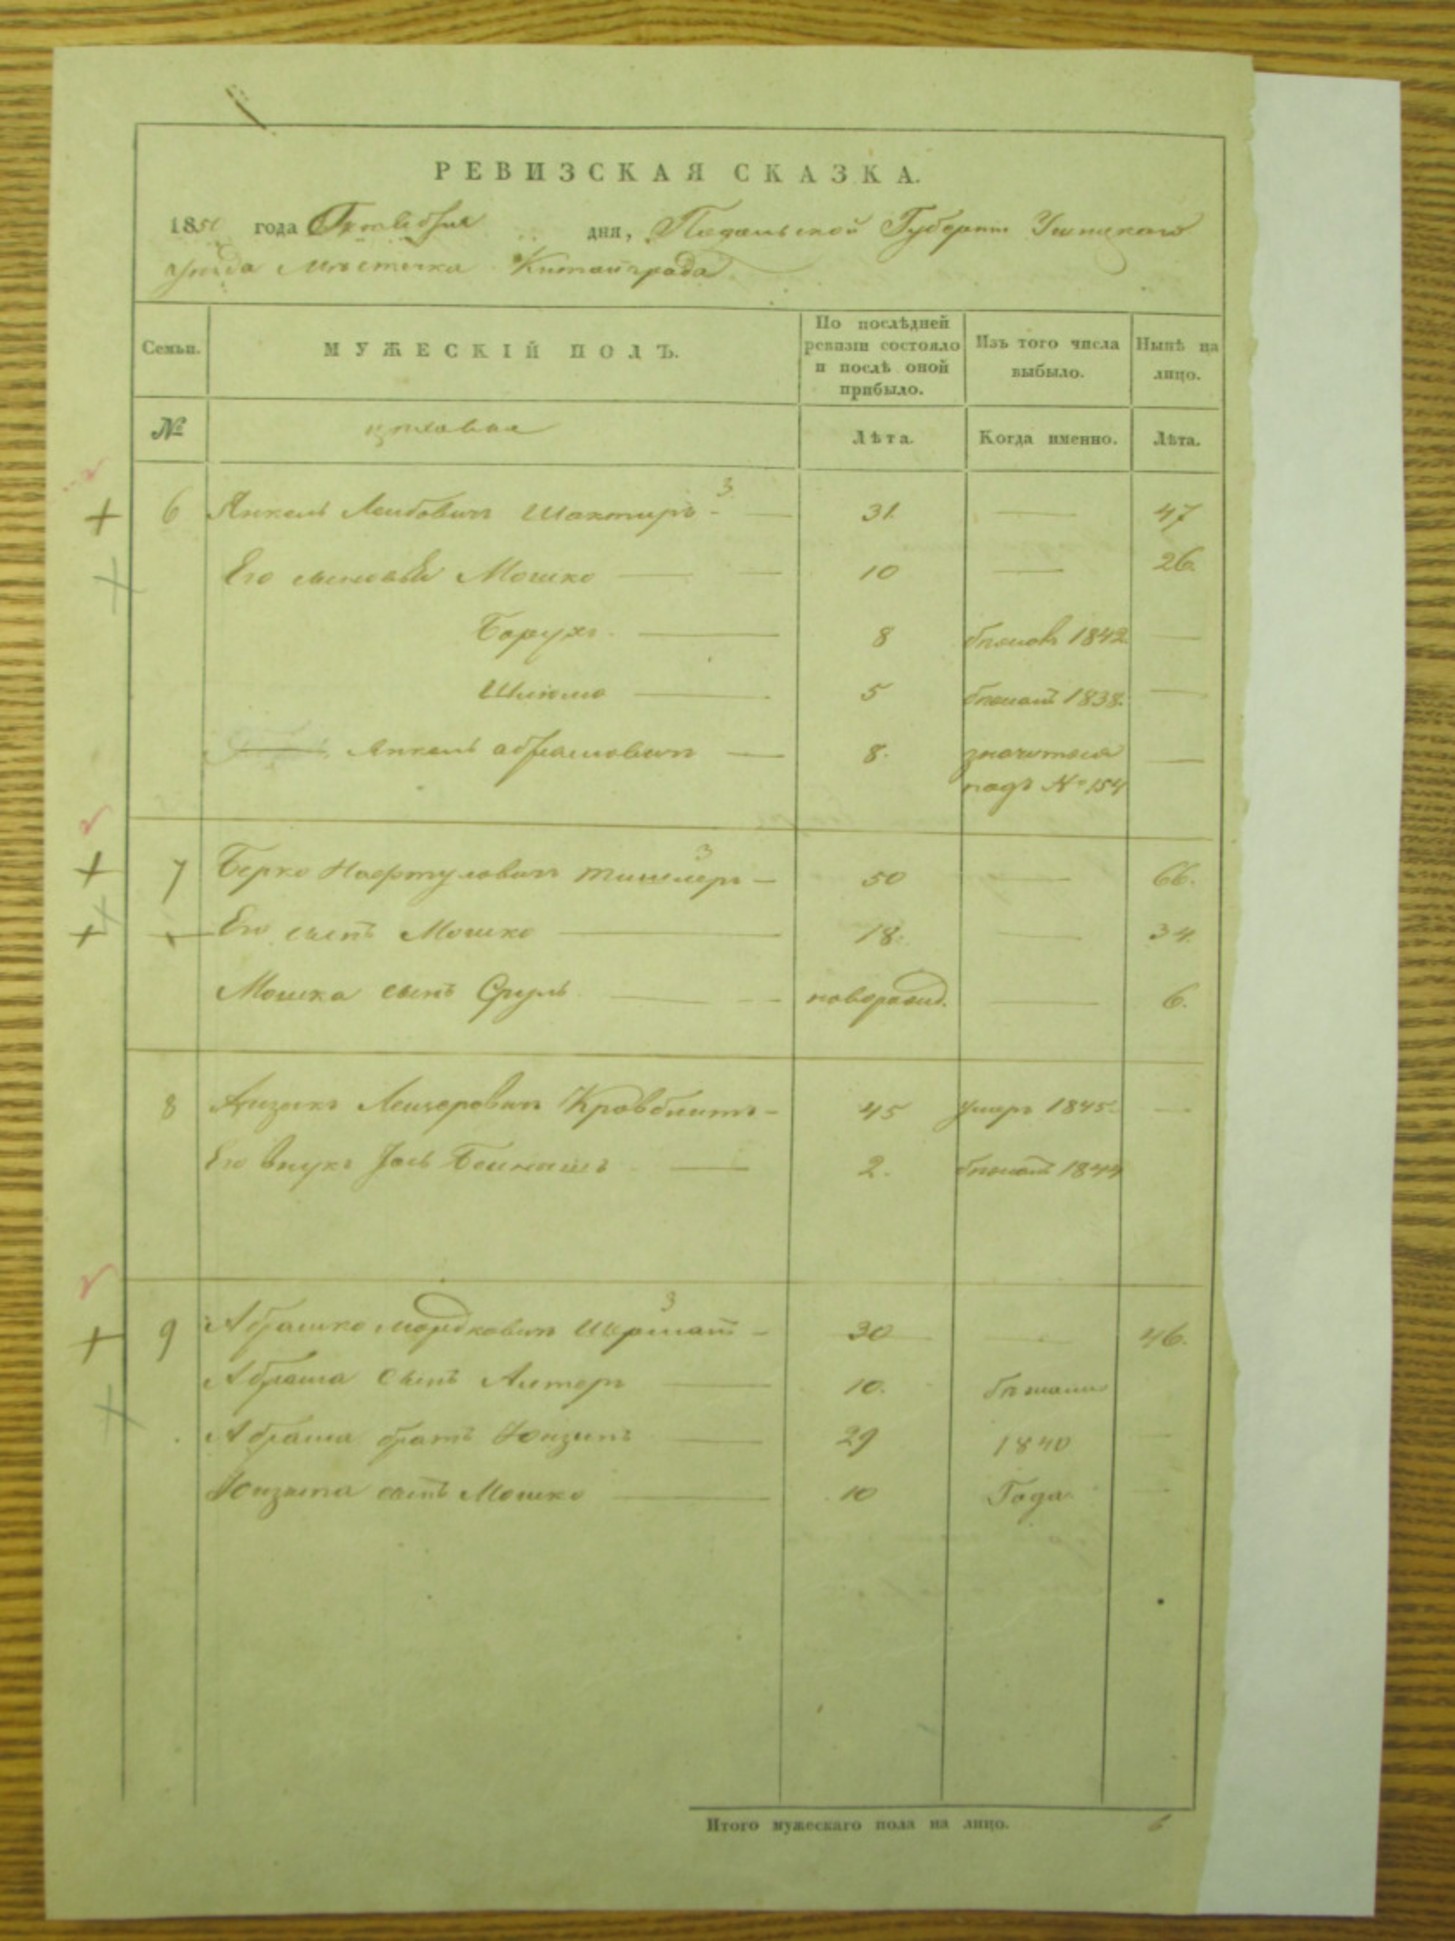 РЕВИЗСКАЯ СКАЗКА.
1850 года Октября дня, Подольской Губернии Ушицкаго
уезда Местечка Китайграда
Семьи. МУЖЕСКІЙ ПОЛЪ. По послѣдней ревизіи состояло и послѣ оной прибыло. Изъ того числа выбыло. Нынѣ на лицо.
№ Лѣта. Когда именно. Лѣта.
6 Янкель Лейбовичъ 3 31. — 47
Его сыновья Мошко 10 — 26.
Борухъ 8 бѣжавъ 1842 —
Шлиома 5 бѣжатъ 1838. —
Янкель Абрамовичъ 8. значится —
подъ № 154
7 Берко Нафтуловичъ Тишлеръ 3 50 — 66.
Его сынъ Мошко 18. — 34
Мошка сынъ Сруль новорожд. — 6.
8 Айзикъ Лейзоровичъ Кровблитъ 45 умеръ 1845 —
Его внукъ Іось Бейнишъ 2. бѣжатъ 1844
9 Абрашко Мордковичъ 3 30 — 46.
Абраша сынъ Алтеръ 10. бѣжали
Абраша братъ 29 1840 —
сынъ Мошко 10 Года —
Итого мужескаго пола на лицо. 6